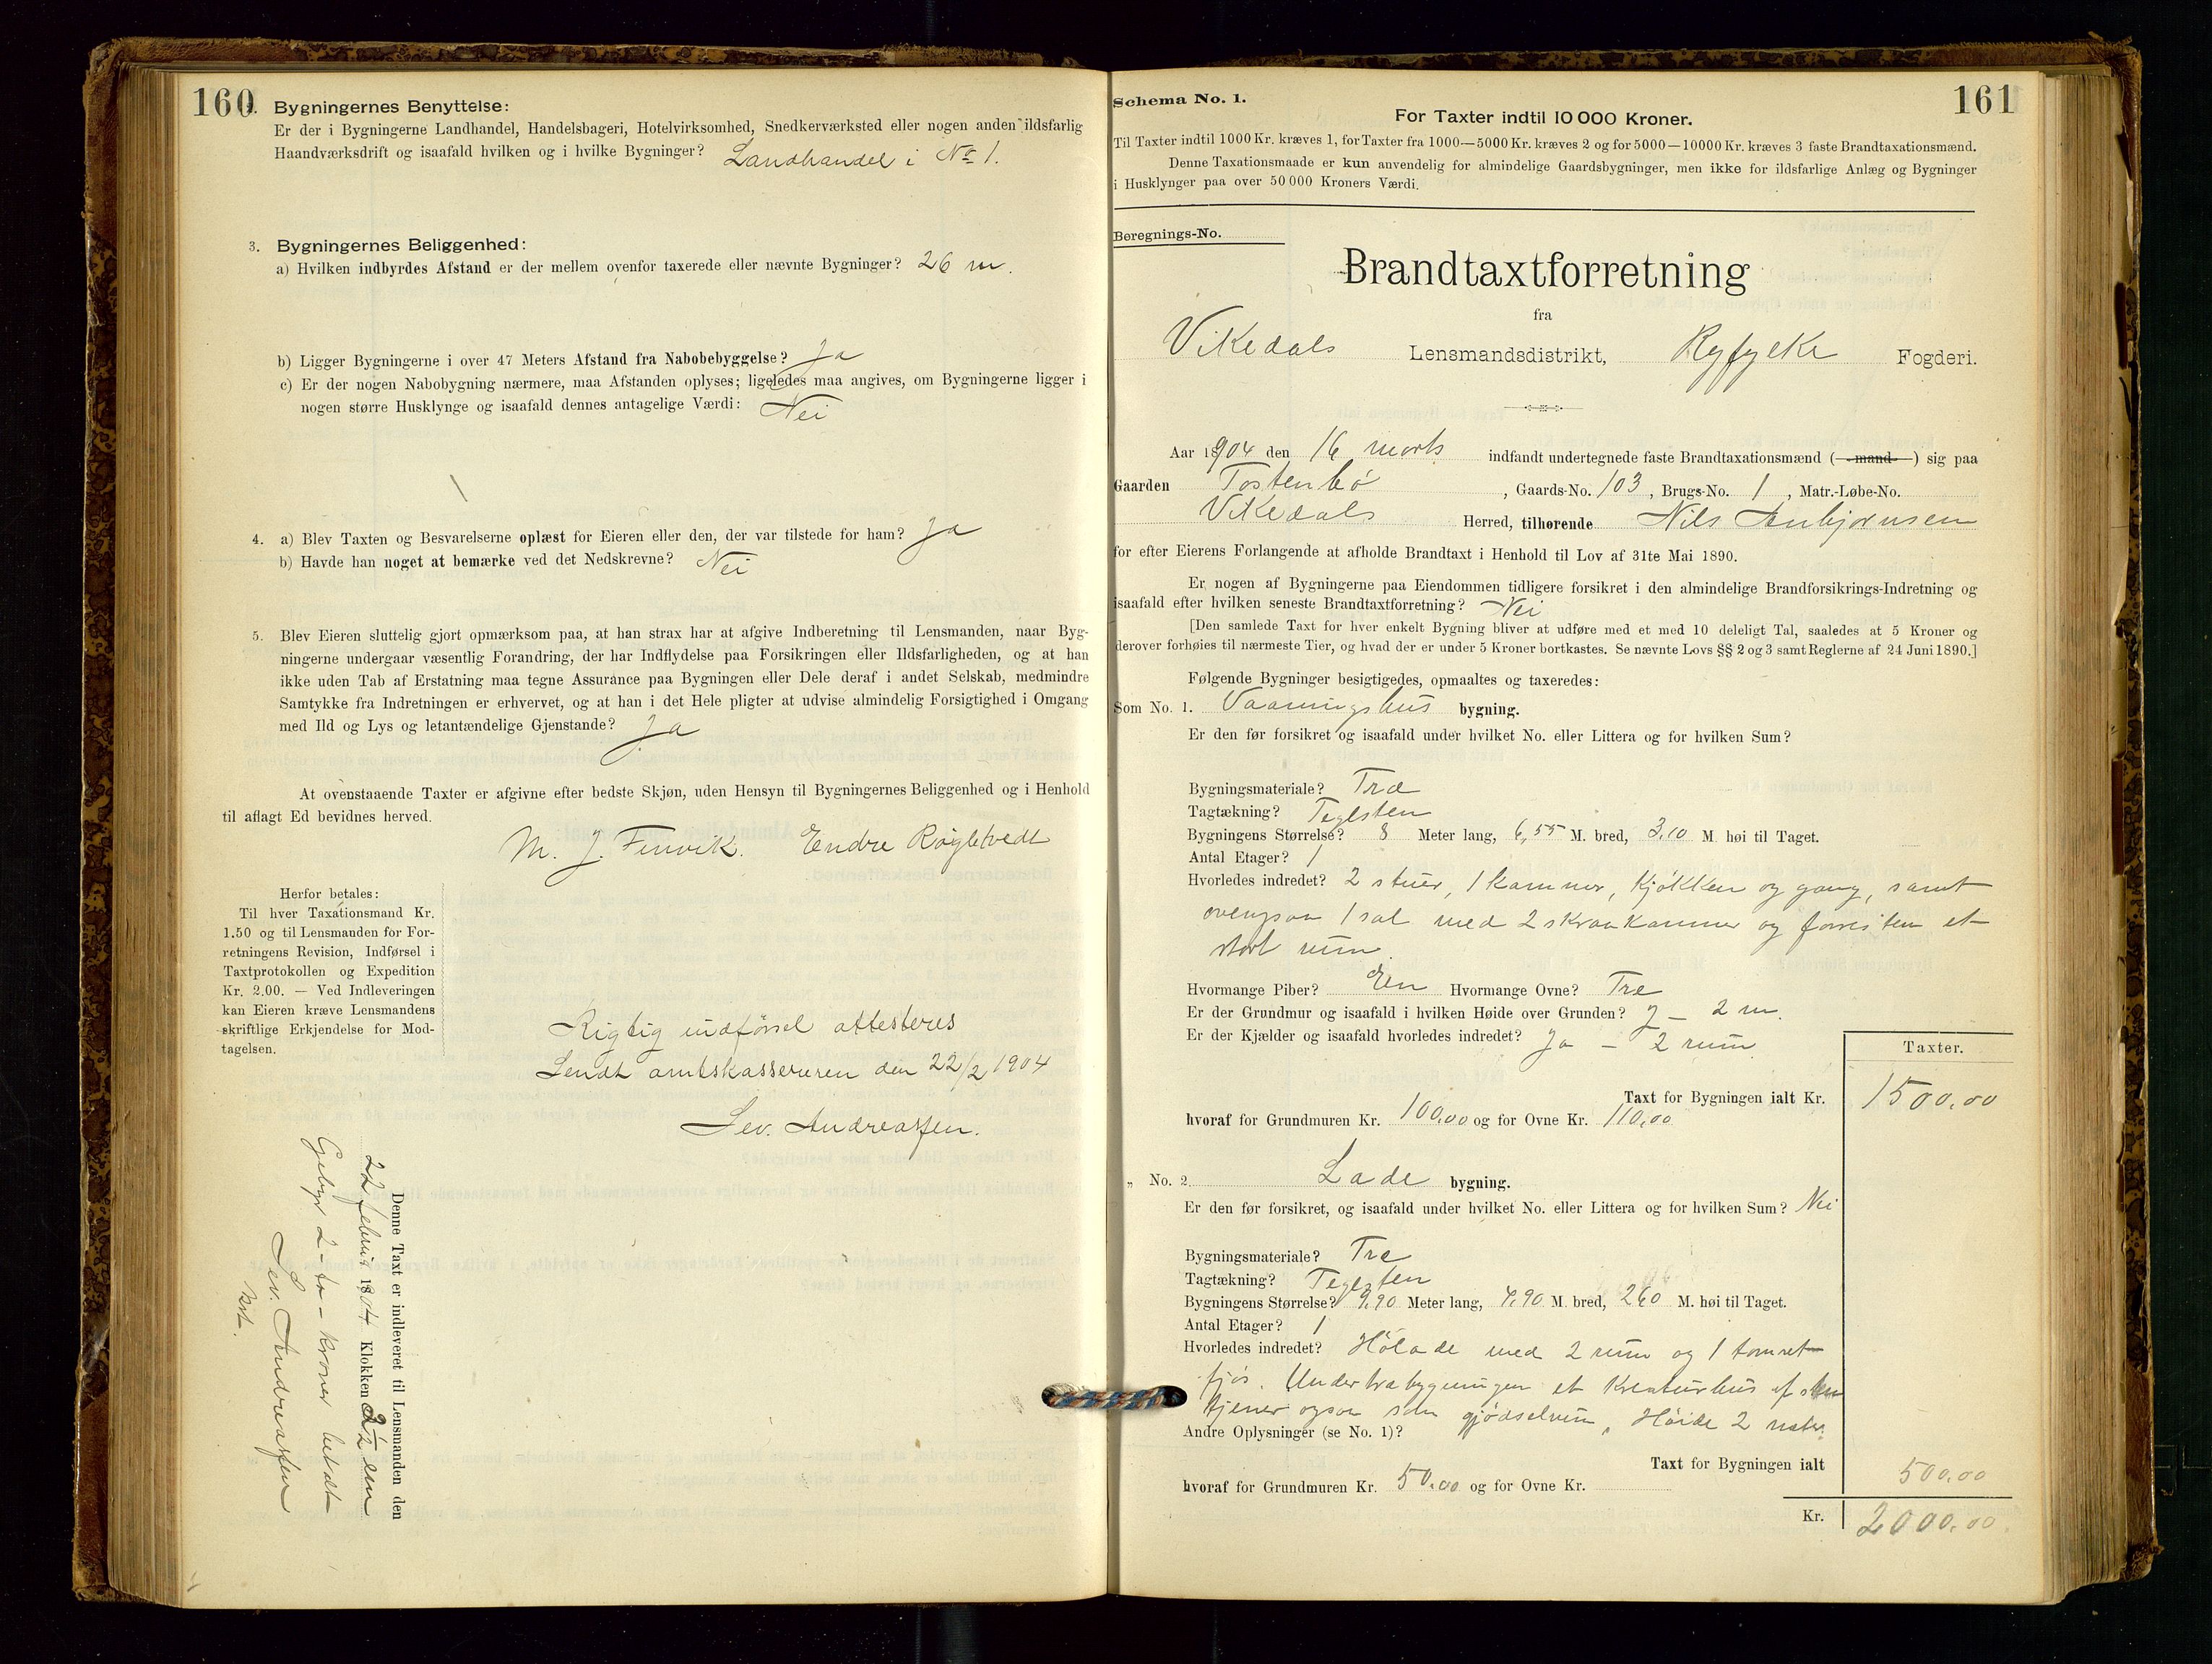 160
2. Bygningernes Benyttelse:
Er der i Bygningerne Landhandel, Handelsbageri, Hotelvirksomhed, Snedkerværksted eller nogen anden ildsfarlig
Haandværksdrift og isaafald hvilken og i hvilke Bygninger? Landhandel i No 1.
3. Bygningernes Beliggenhed:
a) Hvilken indbyrdes Afstand er der mellem ovenfor taxerede eller nævnte Bygninger? 26 m.
b) Ligger Bygningerne i over 47 Meters Afstand fra Nabobebyggelse? Ja
c) Er der nogen Nabobygning nærmere, maa Afstanden oplyses; ligeledes maa angives, om Bygningerne ligger i
nogen større Husklynge og isaafald dennes antagelige Værdi: Nei
4. a) Blev Taxten og Besvarelserne oplæst for Eieren eller den, der var tilstede for ham? Ja
b) Havde han noget at bemærke ved det Nedskrevne? Nei
5. Blev Eieren sluttelig gjort opmærksom paa, at han strax har at afgive Indberetning til Lensmanden, naar Byg-
ningerne undergaar væsentlig Forandring, der har Indflydelse paa Forsikringen eller Ildsfarligheden, og at han
ikke uden Tab af Erstatning maa tegne Assurance paa Bygningen eller Dele deraf i andet Selskab, medmindre
Samtykke fra Indretningen er erhvervet, og at han i det Hele pligter at udvise almindelig Forsigtighed i Omgang
med Ild og Lys og letantændelige Gjenstande? Ja
At ovenstaaende Taxter er afgivne efter bedste Skjøn, uden Hensyn til Bygningernes Beliggenhed og i Henhold
til aflagt Ed bevidnes herved.
M. J. Endre
Herfor betales:
Til hver Taxationsmand Kr.
1.50 og til Lensmanden for For-
retningens Revision, Indførsel i
Taxtprotokollen og Expedition
Kr. 2.00. — Ved Indleveringen
kan Eieren kræve Lensmandens
skriftlige Erkjendelse for Mod-
tagelsen.
Rigtig indførsel attesteres
Sendt amtskassereren den 22/2 1904
Sev. Andreassen.
Denne Taxt er indleveret til Lensmanden den
22 februar 1904 Klokken 2½ em
Gebyr 2 - to - kroner betalt
Sev. Andreassen
161
Schema No. 1.
For Taxter indtil 10 000 Kroner.
Til Taxter indtil 1000 Kr. kræves 1, for Taxter fra 1000—5000 Kr. kræves 2 og for 5000—10000 Kr. kræves 3 faste Brandtaxationsmænd.
Denne Taxationsmaade er kun anvendelig for almindelige Gaardsbygninger, men ikke for ildsfarlige Anlæg og Bygninger
i Husklynger paa over 50 000 Kroners Værdi.
Beregnings-No.
Brandtaxtforretning
fra
Vikedals Lensmandsdistrikt, Ryfylke Fogderi.
Aar 1904 den 16 marts indfandt undertegnede faste Brandtaxationsmænd (mand) sig paa
Gaarden Tostenbö, Gaards-No. 103, Brugs-No. 1, Matr.-Løbe-No.
Vikedals Herred, tilhørende Nils Anbjørnsen
for efter Eierens Forlangende at afholde Brandtaxt i Henhold til Lov af 31te Mai 1890.
Er nogen af Bygningerne paa Eiendommen tidligere forsikret i den almindelige Brandforsikrings-Indretning og
isaafald efter hvilken seneste Brandtaxtforretning? Nei
[Den samlede Taxt for hver enkelt Bygning bliver at udføre med et med 10 deleligt Tal, saaledes at 5 Kroner og
derover forhøies til nærmeste Tier, og hvad der er under 5 Kroner bortkastes. Se nævnte Lovs §§ 2 og 3 samt Reglerne af 24 Juni 1890.]
Følgende Bygninger besigtigedes, opmaaltes og taxeredes:
Som No. 1. Vaaningshus bygning.
Er den før forsikret og isaafald under hvilket No. eller Littera og for hvilken Sum?
Bygningsmateriale? Træ
Tagtækning? Teglsten
Bygningens Størrelse? 8 Meter lang, 6,55 M. bred, 3,10 M. høi til Taget.
Antal Etager? 1
Hvorledes indredet? 2 stuer, 1 kammer, kjøkken og gang, samt
ovenpaa 1 sal med 2 skraakammer og forresten et
stort rum.
Hvormange Piber? En Hvormange Ovne? Tre
Er der Grundmur og isaafald i hvilken Høide over Grunden? J — 2 m.
Er der Kjælder og isaafald hvorledes indredet? Ja — 2 rum
Taxter.
Taxt for Bygningen ialt Kr. 1500.00
hvoraf for Grundmuren Kr. 100,00 og for Ovne Kr. 110,00
„ No. 2. Lade bygning.
Er den før forsikret, og isaafald under hvilket No. eller Littera og for hvilken Sum? Nei
Bygningsmateriale? Træ
Tagtækning? Teglsten
Bygningens Størrelse? 9,90 Meter lang, 4,90 M. bred, 2,60 M. høi til Taget.
Antal Etager? 1
Hvorledes indredet? Hølade med 2 rum og 1 tømret
fjøs. Under træbygningen et Kreaturhus af sten
tjener ogsaa som gjødselrum, Høide 2 meter.
Andre Oplysninger (se No. 1)?
Taxt for Bygningen ialt 500.00
hvoraf for Grundmuren Kr. 50.00 og for Ovne Kr.
Kr. 2000.00.